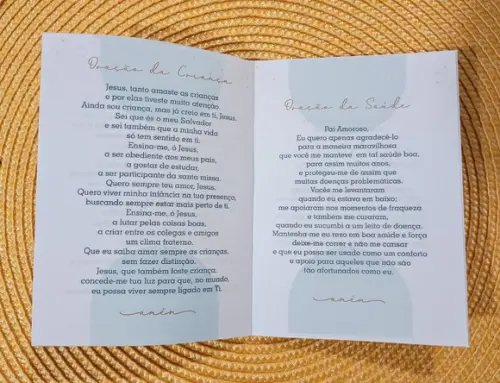 Oração da Criança
Jesus, tanto amaste as crianças
e por elas tiveste muita atenção.
Ainda sou criança, mas já creio em ti, Jesus.
Sei que és o meu Salvador
e sei também que a minha vida
só tem sentido em ti.
Ensina-me, ó Jesus,
a ser obediente aos meus pais,
a gostar de estudar,
a ser participante da santa missa.
Quero sempre teu amor, Jesus.
Quero viver minha infância na tua presença,
buscando sempre estar mais perto de ti.
Ensina-me, ó Jesus,
a lutar pelas coisas boas,
a criar entre os colegas e amigos
um clima fraterno.
Que eu saiba amar sempre as crianças,
sem fazer distinção.
Jesus, que também foste criança,
concede-me tua luz para que, no mundo,
eu possa viver sempre ligado em Ti.
amém
Oração da Saúde
Pai Amoroso,
Eu quero apenas agradecê-lo
para a maneira maravilhosa
que você me manteve em tal saúde boa,
para assim muitos anos,
e protegeu-me de assim que
muitas doenças problemáticas.
Vocês me levantaram
quando eu estava em baixo;
me apoiaram nos momentos de fraqueza
e também me curaram,
quando eu sucumbi a um leito de doença.
Mantenha-me eu rezo em boa saúde e força
deixe-me correr e não me cansar
e que eu possa ser usado como um conforto
e apoio para aqueles que não são
tão afortunados como eu.
amém